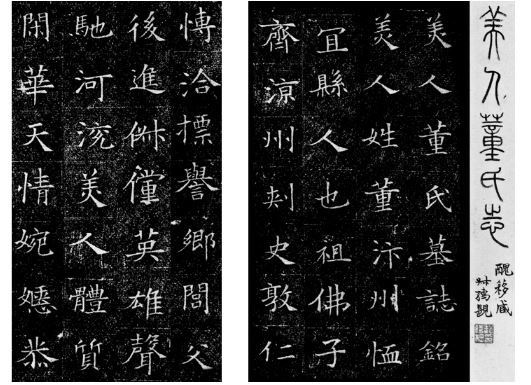 美人董氏志
醜簃藏
美人董氏墓誌銘
美人姓董汴州恤
冝縣人也祖佛子
齊涼州刾史敦仁
博洽摽譽鄉閭父
後進俶儻英雄聲
馳河渷美人體質
閑華天情婉嫕恭